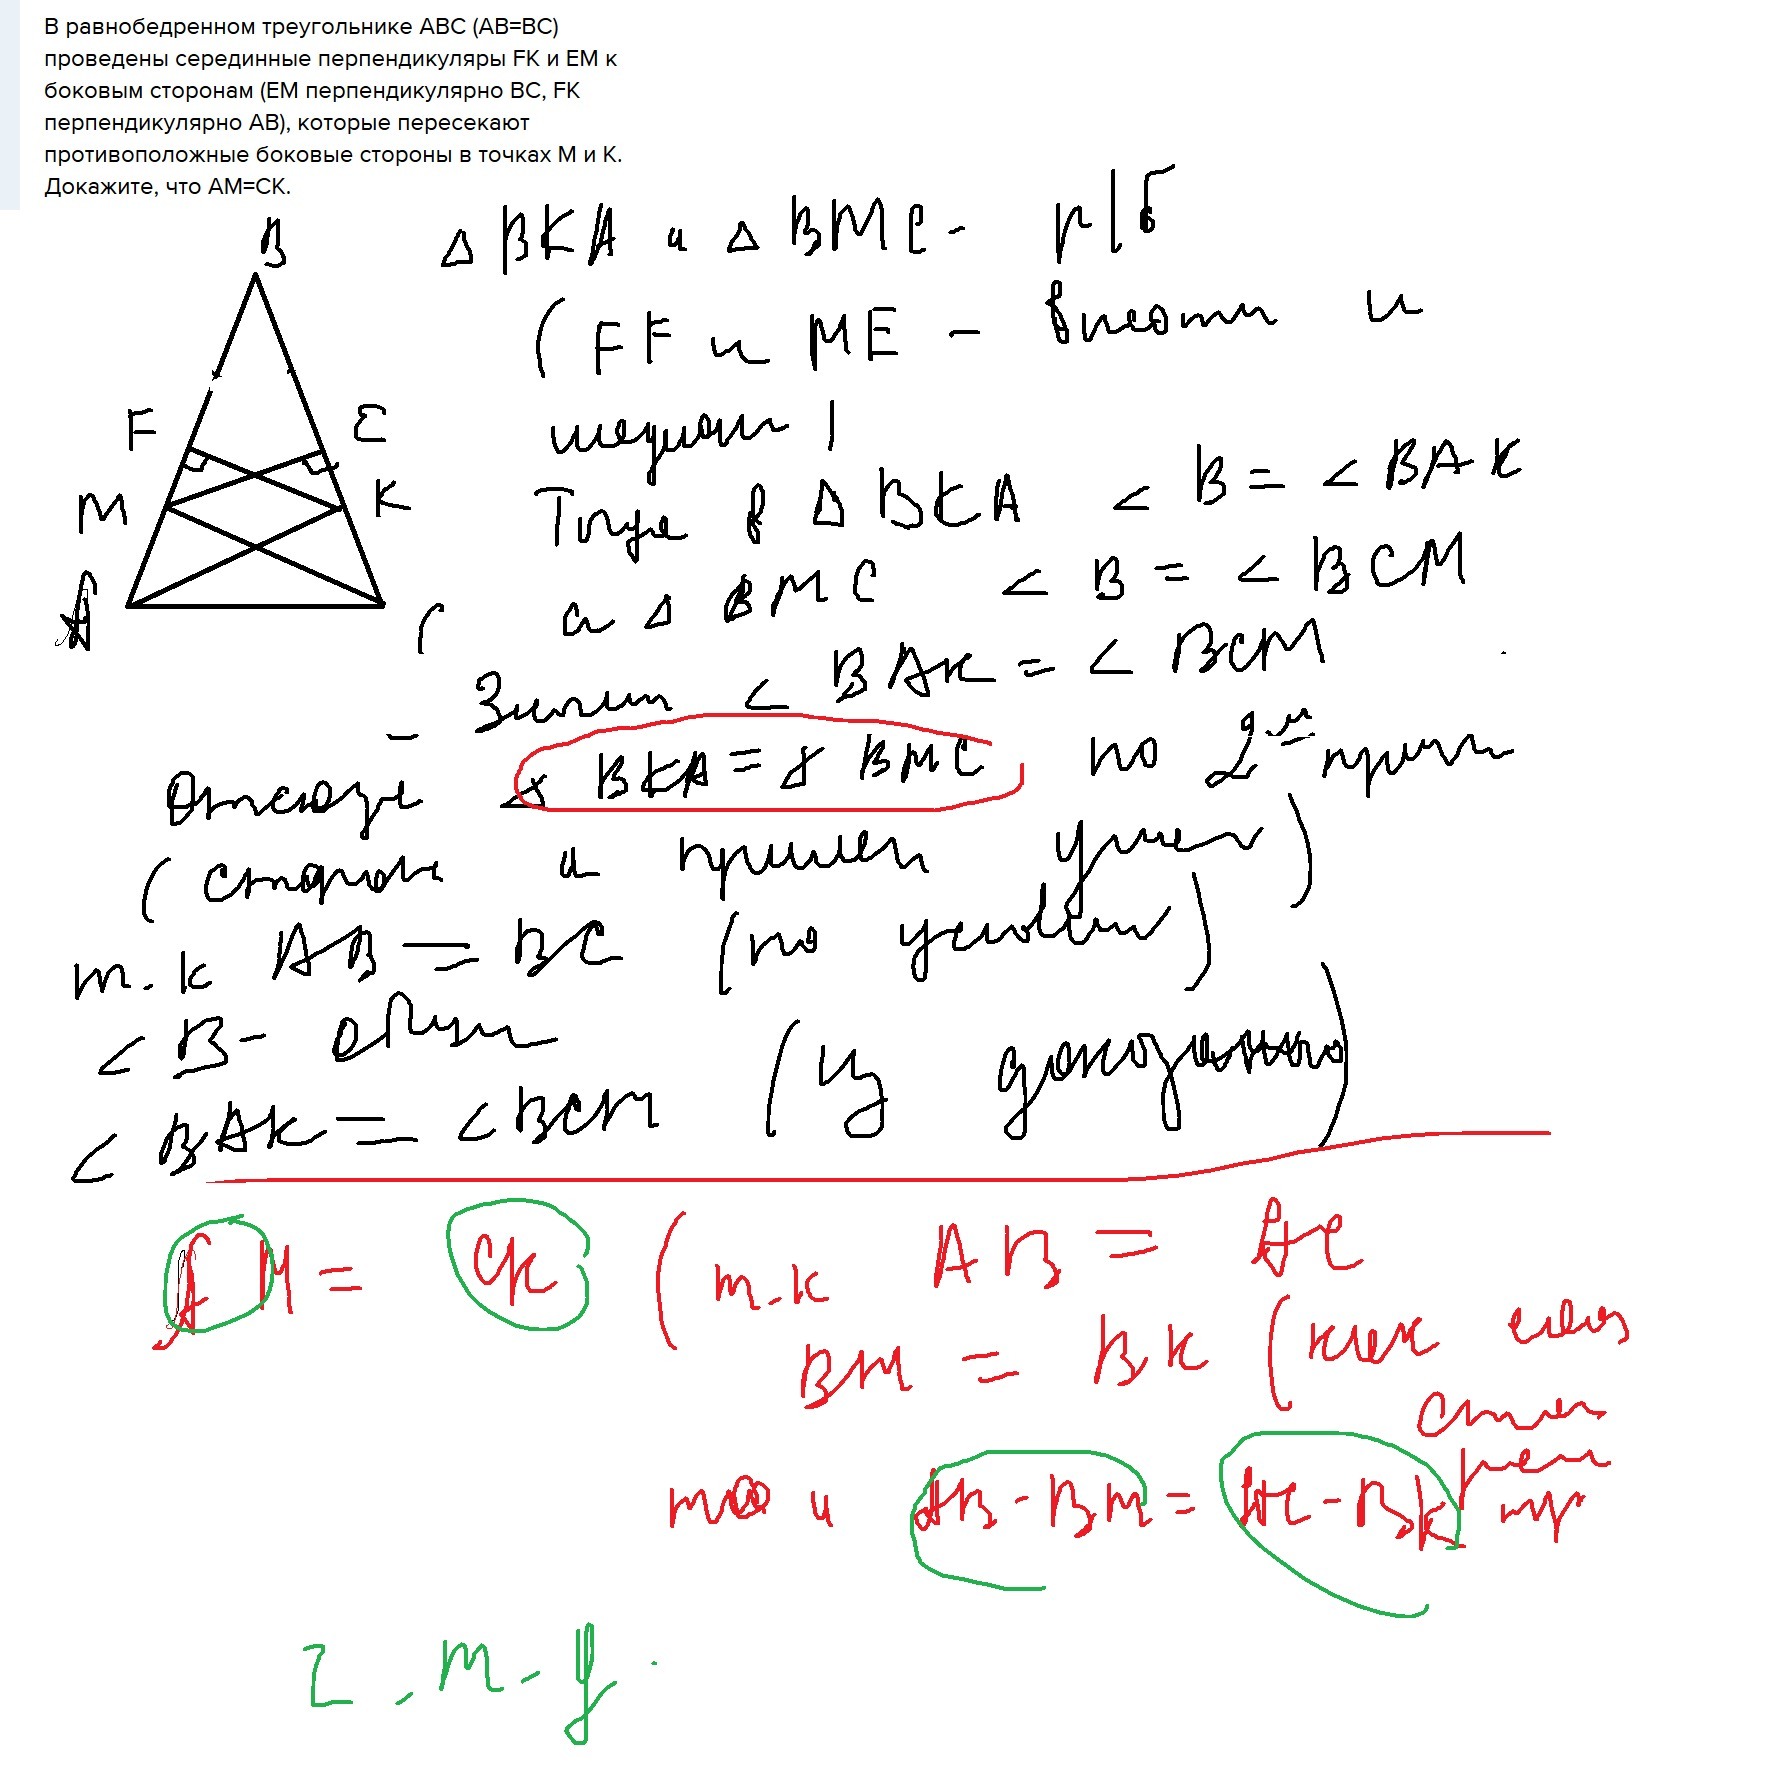 В равнобедренном треугольнике ABC (AB=BC)
проведены серединные перпендикуляры FK и EM к
боковым сторонам (EM перпендикулярно BC, FK
перпендикулярно AB), которые пересекают
противоположные боковые стороны в точках M и K.
Докажите, что AM=CK.
B
F E
M K
A C
Δ BKA и Δ BMC - р/б
(FF и ME - висоти и
медиан)
Тогда в Δ BKA < B = < BAK
а Δ BMC < B = < BCM
Значит < BAK = < BCM
Отсюда Δ BKA = Δ BMC по 2му призн
(сторона и прилеж углы)
т.к AB = BC (по условию)
< B - общий
< BAK = < BCM (из доказанного)
AM = CK (т.к AB = AC
BM = BK (как
то и AB - BM = AC - BK
тр